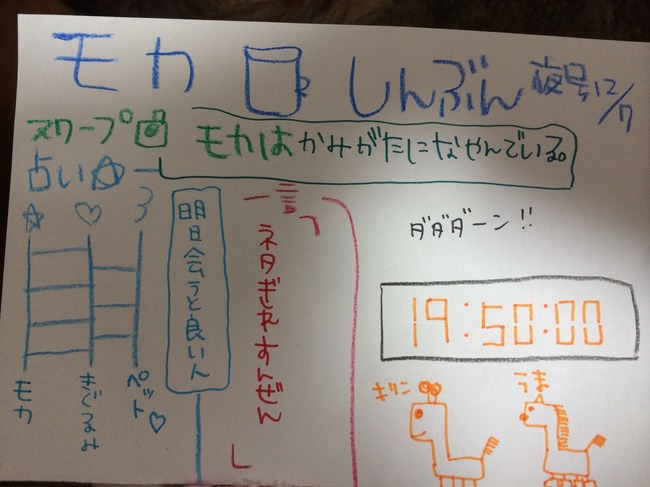 モカしんぶん 夜号12/7
スクープ
モカはかみがたになやんでいる。
占い
明日会うと良い人
モカ
きぐるみ
ペット♡
一言
ネタぎれすんぜん
ダダダーン!!
19:50:00
キリン
うま